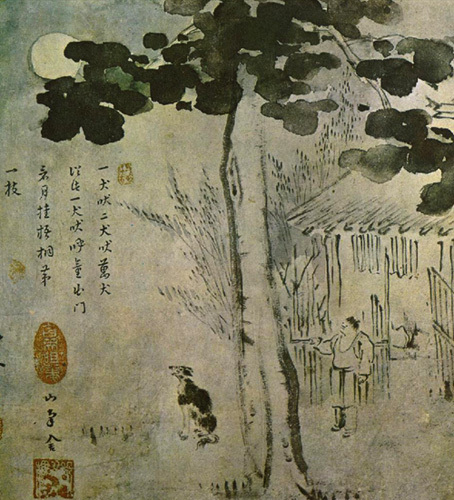 一犬吠二犬吠萬犬
從此一犬吠呼童出門
看月掛梧桐第
一枝